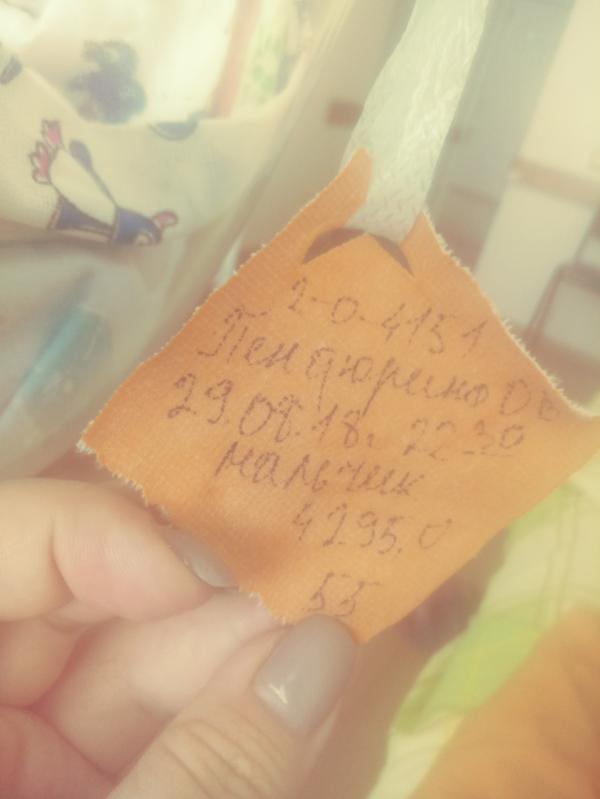 2-0-4151
Пендюрина ОВ
29.08.18. 22-30
мальчик
4295.0
55